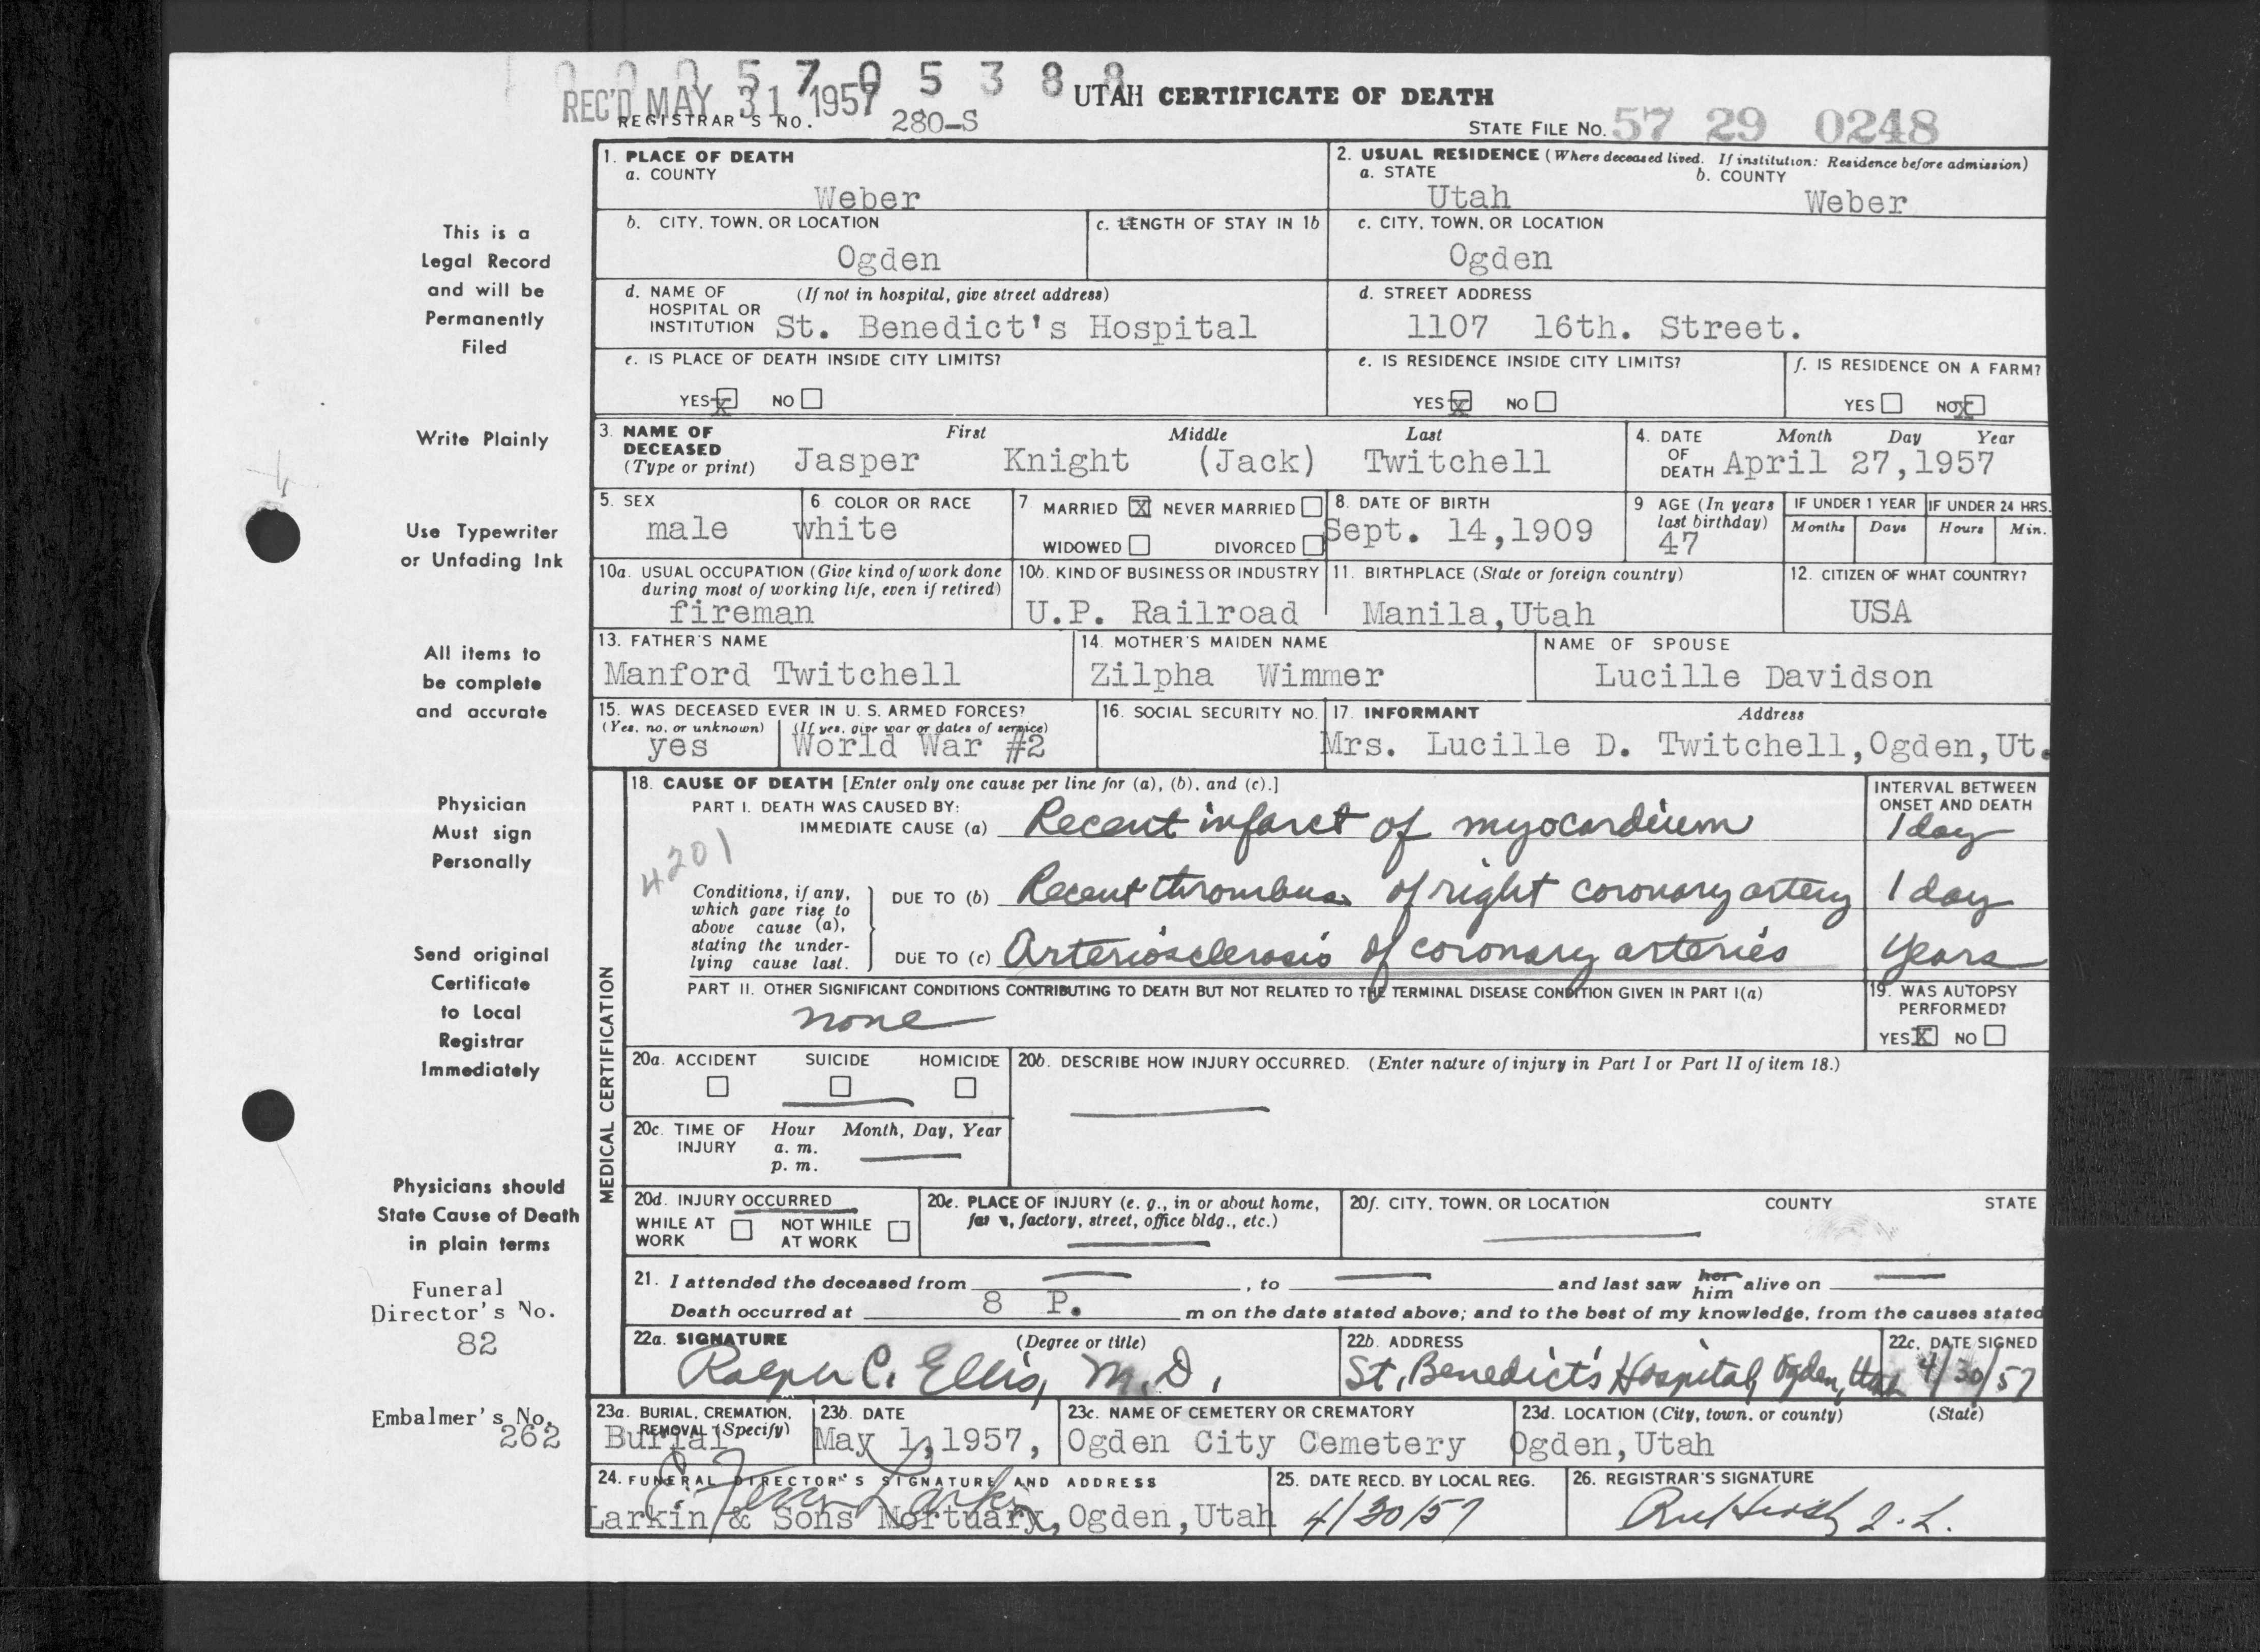 0 0 0 5 7 0 5 3 8 8
REC'D MAY 31 1957 UTAH CERTIFICATE OF DEATH
REGISTRAR'S NO. 280-S
STATE FILE NO. 57 29 0248
1. PLACE OF DEATH
a. COUNTY
Weber
2. USUAL RESIDENCE (Where deceased lived. If institution: Residence before admission)
a. STATE b. COUNTY
Utah Weber
b. CITY, TOWN, OR LOCATION
Ogden
c. LENGTH OF STAY IN 1b
c. CITY, TOWN, OR LOCATION
Ogden
d. NAME OF (If not in hospital, give street address)
HOSPITAL OR
INSTITUTION St. Benedict's Hospital
d. STREET ADDRESS
1107 16th. Street.
e. IS PLACE OF DEATH INSIDE CITY LIMITS?
YES X NO
e. IS RESIDENCE INSIDE CITY LIMITS?
YES X NO
f. IS RESIDENCE ON A FARM?
YES NO X
3. NAME OF First Middle Last
DECEASED
(Type or print) Jasper Knight (Jack) Twitchell
4. DATE Month Day Year
OF
DEATH April 27,1957
5. SEX
male
6 COLOR OR RACE
white
7 MARRIED X NEVER MARRIED
WIDOWED DIVORCED
8. DATE OF BIRTH
Sept. 14,1909
9 AGE (In years
last birthday)
47
IF UNDER 1 YEAR IF UNDER 24 HRS.
Months Days Hours Min.
10a. USUAL OCCUPATION (Give kind of work done
during most of working life, even if retired)
fireman
10b. KIND OF BUSINESS OR INDUSTRY
U.P. Railroad
11. BIRTHPLACE (State or foreign country)
Manila,Utah
12. CITIZEN OF WHAT COUNTRY?
USA
13. FATHER'S NAME
Manford Twitchell
14. MOTHER'S MAIDEN NAME
Zilpha Wimmer
NAME OF SPOUSE
Lucille Davidson
15. WAS DECEASED EVER IN U. S. ARMED FORCES?
(Yes, no, or unknown) (If yes, give war or dates of service)
yes World War #2
16. SOCIAL SECURITY NO.
17. INFORMANT Address
Mrs. Lucille D. Twitchell,Ogden,Ut.
MEDICAL CERTIFICATION
18. CAUSE OF DEATH [Enter only one cause per line for (a), (b), and (c).]
PART I. DEATH WAS CAUSED BY:
IMMEDIATE CAUSE (a) Recent infarct of myocardium
INTERVAL BETWEEN
ONSET AND DEATH
1 day
4201
Conditions, if any,
which gave rise to
above cause (a),
stating the under-
lying cause last.
DUE TO (b) Recent thrombus of right coronary artery 1 day
DUE TO (c) Arteriosclerosis of coronary arteries years
PART II. OTHER SIGNIFICANT CONDITIONS CONTRIBUTING TO DEATH BUT NOT RELATED TO THE TERMINAL DISEASE CONDITION GIVEN IN PART I(a)
none
19. WAS AUTOPSY
PERFORMED?
YES X NO
20a. ACCIDENT SUICIDE HOMICIDE
20b. DESCRIBE HOW INJURY OCCURRED. (Enter nature of injury in Part I or Part II of item 18.)
20c. TIME OF Hour Month, Day, Year
INJURY a. m.
p. m.
20d. INJURY OCCURRED
WHILE AT NOT WHILE
WORK AT WORK
20e. PLACE OF INJURY (e. g., in or about home,
factory, street, office bldg., etc.)
20f. CITY, TOWN, OR LOCATION COUNTY STATE
21. I attended the deceased from , to and last saw her him alive on
Death occurred at 8 P. m on the date stated above; and to the best of my knowledge, from the causes stated
22a. SIGNATURE (Degree or title)
Ralph C. Ellis, M.D.
22b. ADDRESS
St. Benedict's Hospital, Ogden, Utah
22c. DATE SIGNED
4/30/57
23a. BURIAL, CREMATION,
REMOVAL (Specify)
Burial
23b. DATE
May 1,1957,
23c. NAME OF CEMETERY OR CREMATORY
Ogden City Cemetery
23d. LOCATION (City, town, or county) (State)
Ogden,Utah
24. FUNERAL DIRECTOR'S SIGNATURE AND ADDRESS
Larkin & Sons Mortuary, Ogden,Utah
25. DATE RECD. BY LOCAL REG.
4/30/57
26. REGISTRAR'S SIGNATURE
This is a
Legal Record
and will be
Permanently
Filed
Write Plainly
Use Typewriter
or Unfading Ink
All items to
be complete
and accurate
Physician
Must sign
Personally
Send original
Certificate
to Local
Registrar
Immediately
Physicians should
State Cause of Death
in plain terms
Funeral
Director's No.
82
Embalmer's No.
262